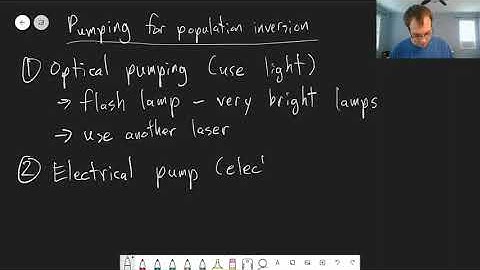 Pumping for population inversion
① Optical pumping (use light)
→ flash lamp - very bright lamps
→ use another laser
② Electrical pump (elec